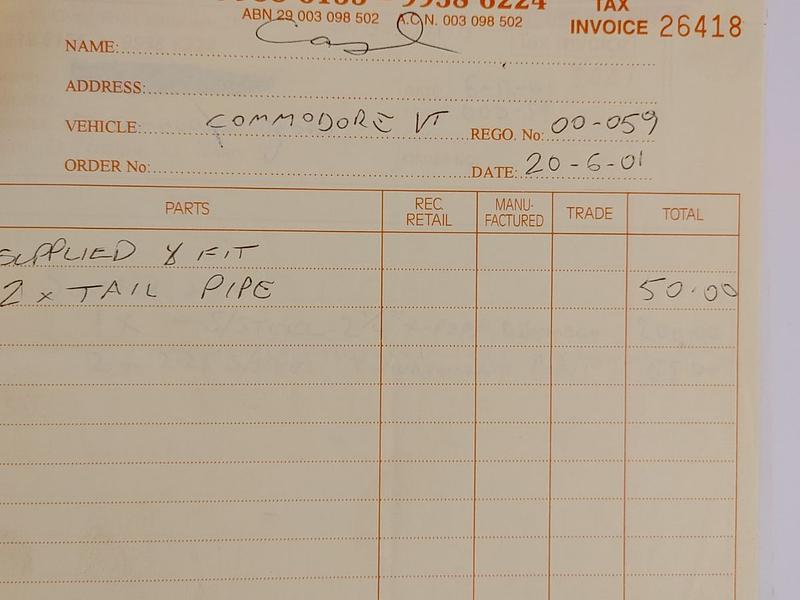 9938 6224 TAX
ABN 29 003 098 502 A.C.N. 003 098 502 INVOICE 26418
NAME: Cash
ADDRESS:
VEHICLE: COMMODORE VT REGO. No: 00-059
ORDER No: DATE: 20-6-01
PARTS REC. RETAIL MANU-FACTURED TRADE TOTAL
SUPPLIED & FIT
2 x TAIL PIPE 50.00